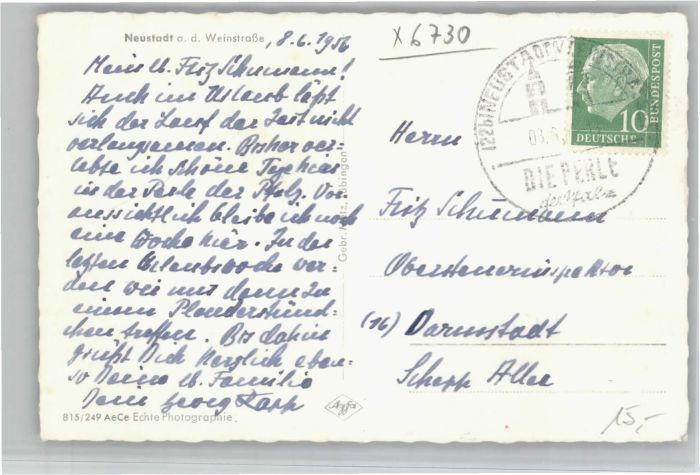 Neustadt a. d. Weinstraße, 8.6.1956
Mein lb. Fritz Schumann!
Auch im Urlaub läßt
sich der Lauf der Zeit nicht
verlangsamen. Bisher ver-
lebte ich schöne Tage hier
in der Perle der Pfalz. Vor-
aussichtlich bleibe ich noch
eine Woche hier. In der
letzten Urlaubswoche wer-
den wir uns dann zu
einem Plauderstünd-
chen treffen. Bis dahin
grüßt Dich herzlich eben-
so Deine lb. Familie
Dein Georg Rapp
815/249 AeCe Echte Photographie.
Gebr. Metz, Tübingen
Agfa
x 6730
(22b) NEUSTADT
DIE PERLE
der Pfalz
10
DEUTSCHE
BUNDESPOST
Herrn
Fritz Schumann
Obersteuerinspektor
(16) Darmstadt
Schepp Allee
15,-